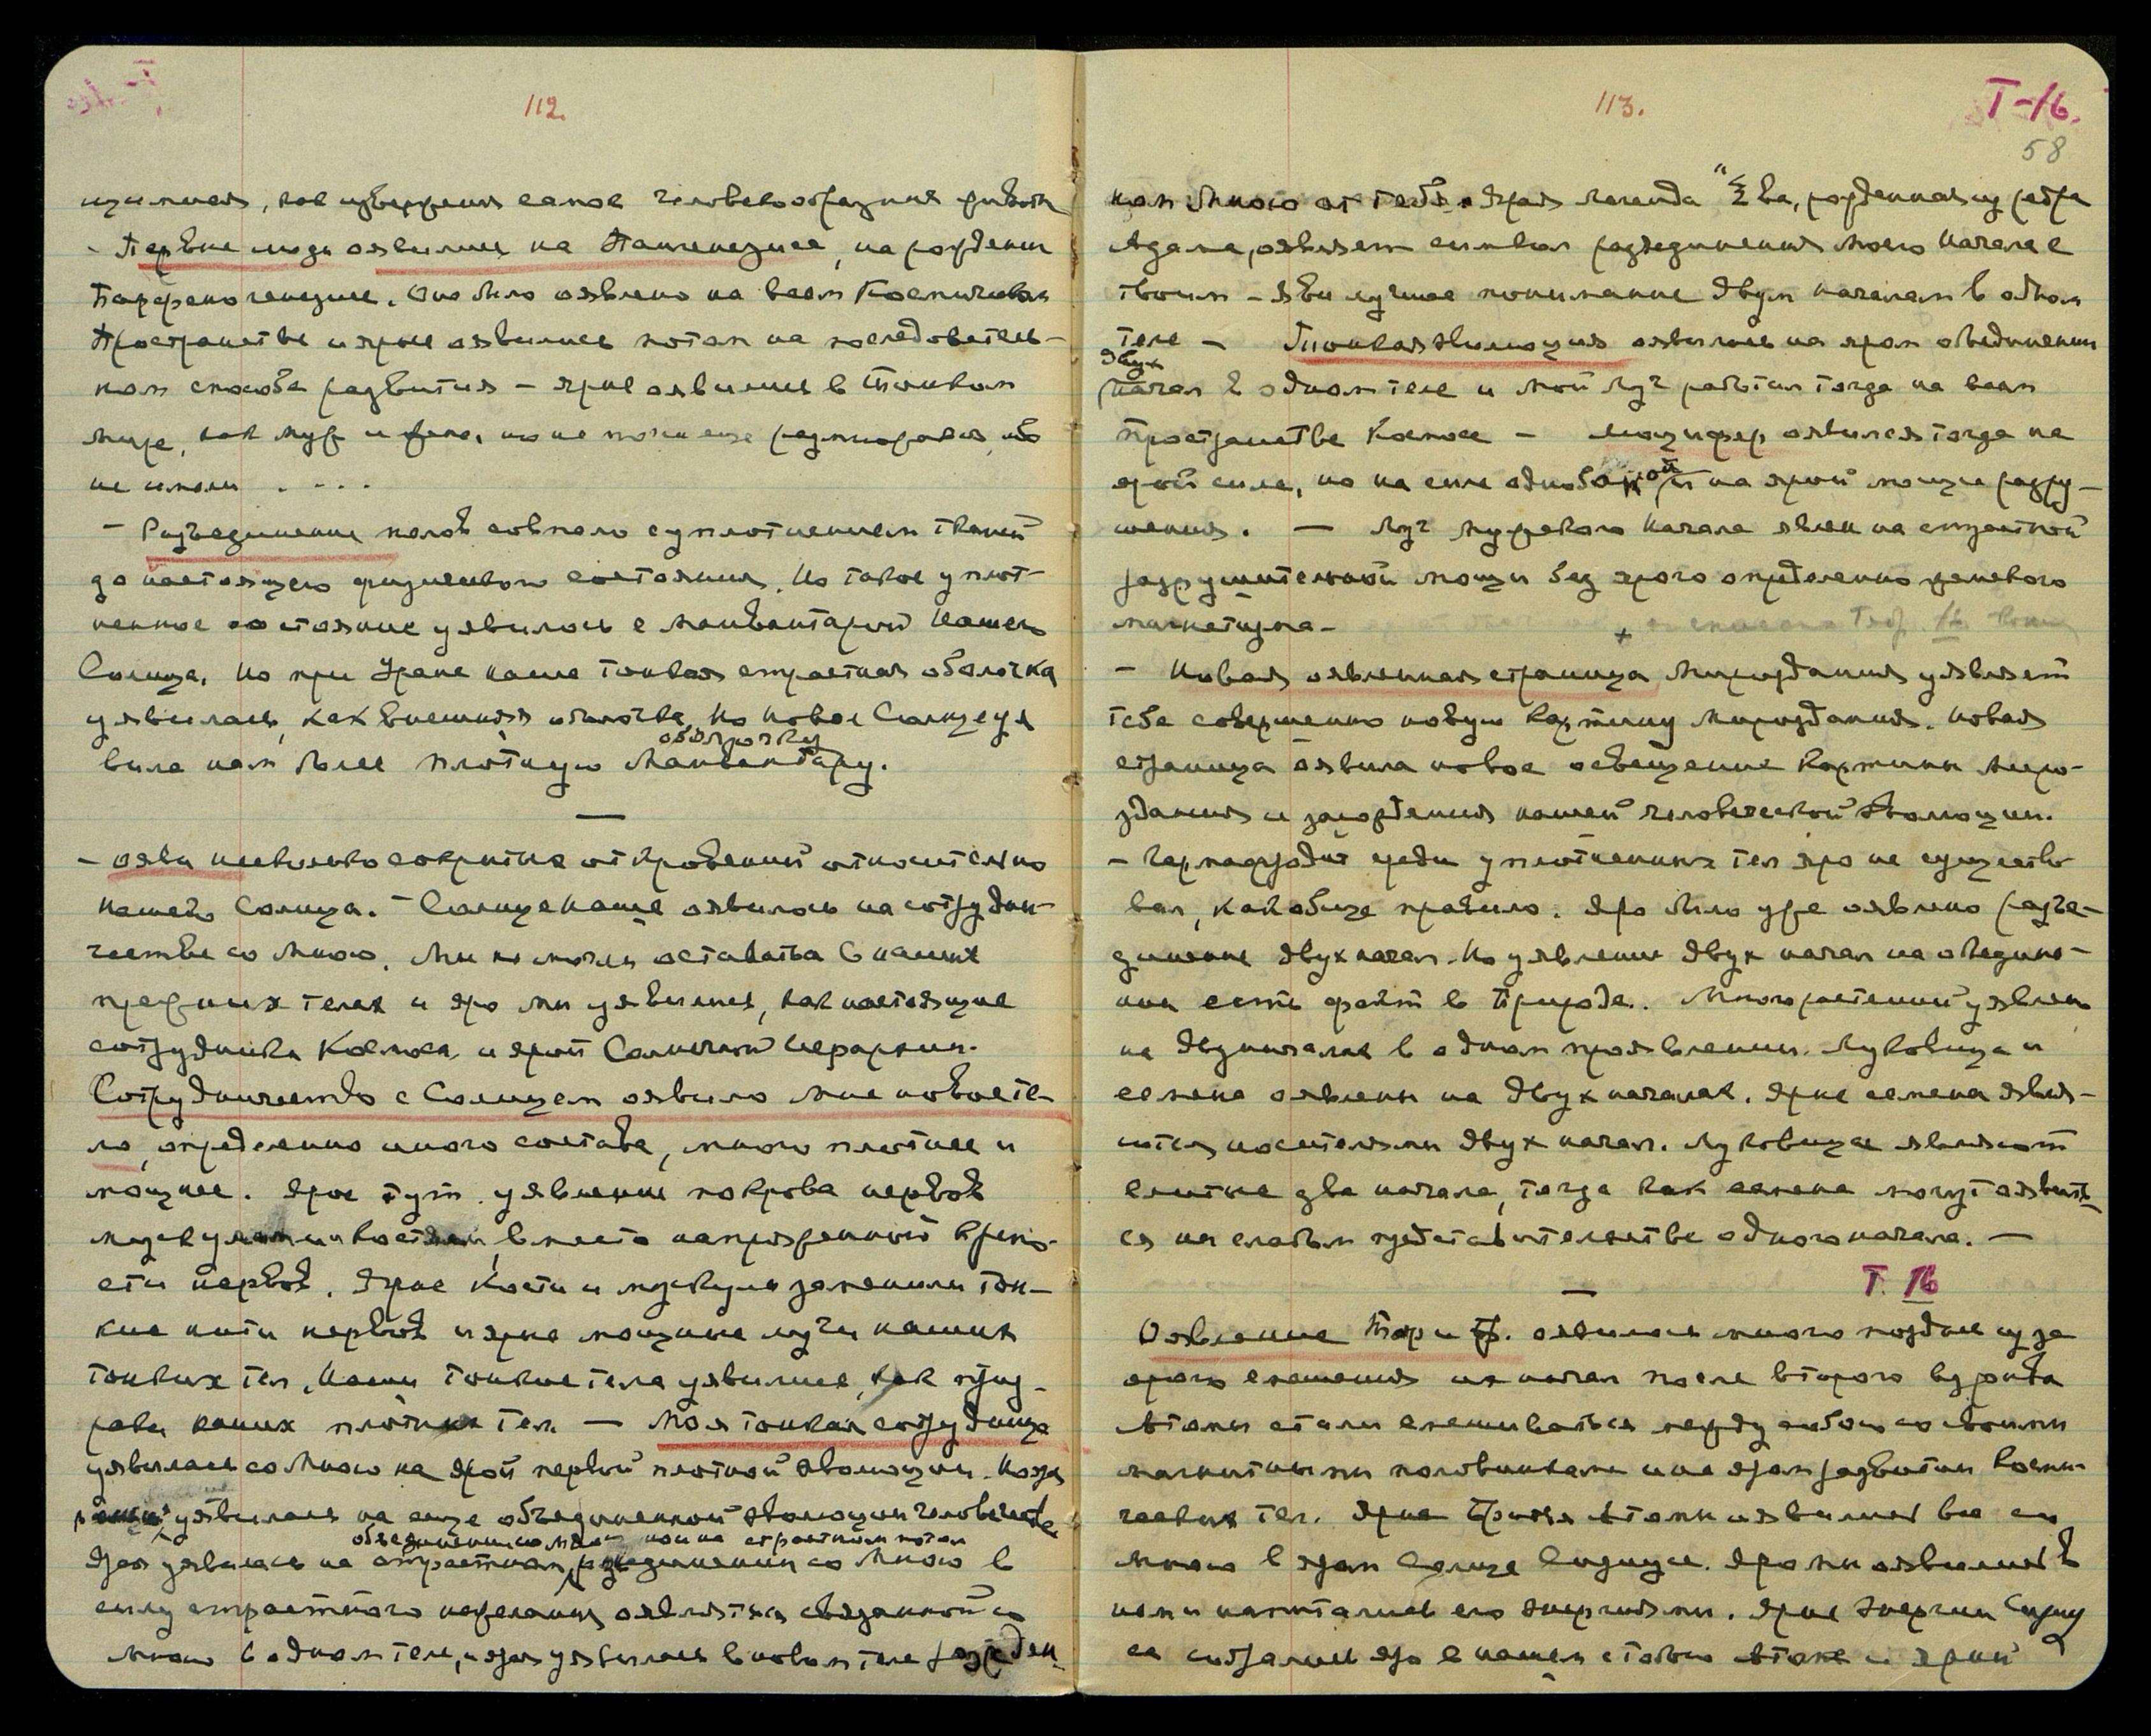 112.
, как извержения самое человекообразных
- Первые люди оявились на Патогенезисе, на рождении
Партеногенезиса. Оно было оявлено на всем Космическом
Пространстве и ярые оявились потом на последователь-
ном способе развития - ярые оявились в Тонком
Мире, как муж и жена, но не могли еще размножаться, ибо
не имели . - . .
- Разъединение полов совпало с уплотнением тканей
до настоящего физического состояния. Но такое уплот-
ненное состояние уявилось с Манвантарой Нашего
Солнца. Но при Уране наша тонкая страстная оболочка
уявилась, как внешняя оболочка. Но новое Солнце уя
оболочку
вило нам более плотную Манвантару.
—
- Ояви несколько сокрытых откровений относительно
Нашего Солнца. - Солнце наше оявилось на сотрудни-
честве со Мною. Мы не могли оставаться в наших
прежних телах и яро мы уявились, как настоящие
сотрудники Космоса и ярой Солнечной Иерархии.
Сотрудничество с Солнцем оявило мне новое те-
ло, определенно иного состава, много плотнее и
мощнее. Ярое тут уявление покрова нервов
мускулами и костями, вместо напряженной крепо-
сти нервов. Ярые кости и мускулы заменили тон-
кие нити нервов и ярые мощные лучи наших
тонких тел. Наши тонкие тела уявились, как
наших плотных тел — Моя тонкая сотрудница
уявилась со Мною на ярой первой плотной эволюции. Когда
уявилась на еще объединенной эволюции человечества
объединении со Мною, но и на страстном потом
Ярая уявилась на страстном разъединении со Мною в
силу страстного нежелания оявляться связанной со
Мною в одном теле, и ярая уявилась в новом теле
113.
T-16.
58
ном Мною от тебя. Ярая легенда "Ева, рожденная из ребра
Адама, оявляет символ разъединения Моего Начала с
твоим - яви лучшее понимание двум началам в одном
теле - Тонкая эволюция оявилась на яром объединении
двух
начал в одном теле и мой луч работал тогда на всем
Пространстве Космоса - Люцифер оявился тогда на
ярой силе, но на силе однобокой и на ярой мощи разру-
шения. — Луч мужского Начала явлен на страстной
разрушительной мощи без ярого определенно женского
магнетизма -
- Новая оявленная страница Мироздания уявляет
тебе совершенно новую картину мироздания. Новая
страница оявила новое освещение картины миро-
здания и зарождения нашей человеческой эволюции.
- Гермафродит среди уплотненных тел яро не существо-
вал, как общее правило. Яро было уже оявлено разъе-
динение двух начал. Но уявление двух начал на объедине-
нии есть факт в Природе. Много растений уявлены
на двуначалие в одном проявлении. Луковица и
семена оявлены на двух началах. Ярые семена явля-
ются носителями двух начал. Луковицы являют
слитые два начала, тогда как семена могут оявить-
ся на слабом представительстве одного начала. —
T. 16
—
Оявление Тары Ур. оявилось много позднее из за
ярого смешения их начал после второго взрыва
Атомы стали смешиваться между собою со своими
магнитными половинками и на яром развитии косми-
ческих тел. Ярые атомы оявились все со
Мною в яром Солнце Сириусе. Яро мы оявились в
нем и напитались его энергиями. Ярые энергии Сириу
са собрались яро в нашем атоме и ярый